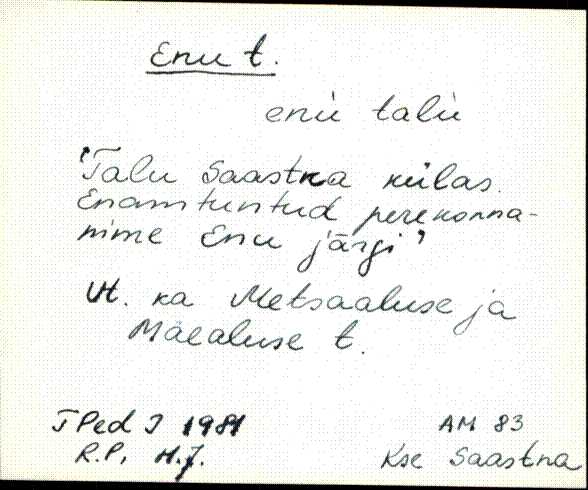 Enu t.
enu̇ talu̇
'Talu Saastna külas.
Enamtuntud perekonna-
nime Enu järgi'
Vt. ka Metsaaluse ja
Mäealuse t.
TPed I 1981 AM 83
R.P. H.J. Kse Saastna